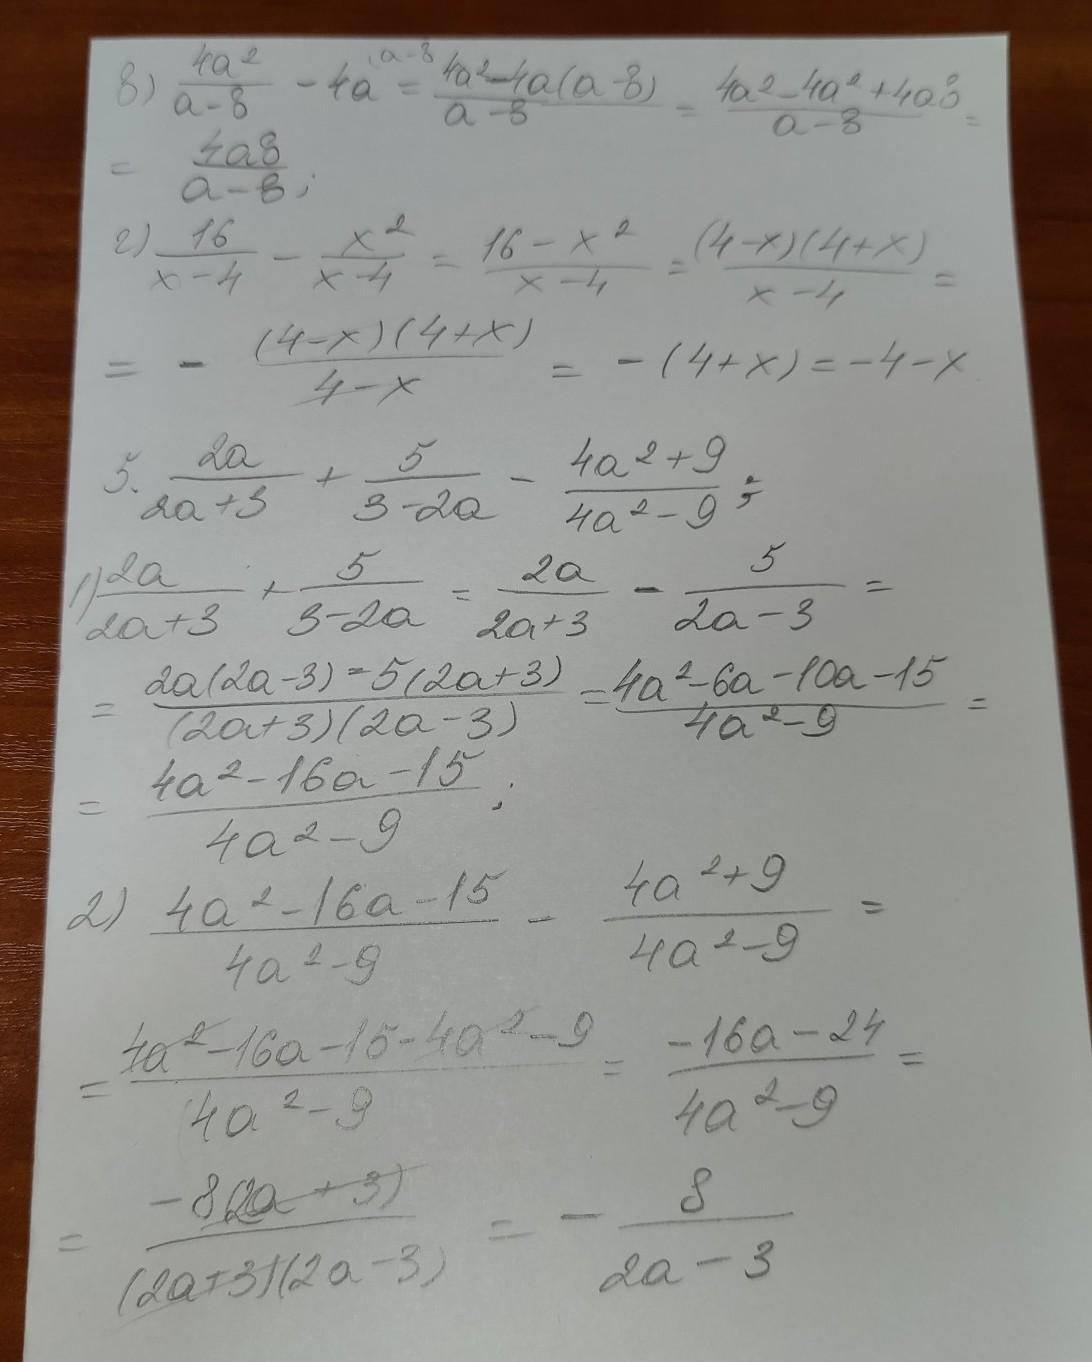 в) 4a²/(a-в) - 4a ⁽ᵃ⁻ᵝ = (4a²-4a(a-в))/(a-в) = (4a²-4a²+4aв)/(a-в) =
= 4aв/(a-в);
г) 16/(x-4) - x²/(x-4) = (16-x²)/(x-4) = (4-x)(4+x)/(x-4) =
= - (4-x)(4+x)/(4-x) = -(4+x) = -4-x
5. 2a/(2a+3) + 5/(3-2a) - (4a²+9)/(4a²-9);
1) 2a/(2a+3) + 5/(3-2a) = 2a/(2a+3) - 5/(2a-3) =
= (2a(2a-3)-5(2a+3))/((2a+3)(2a-3)) = (4a²-6a-10a-15)/(4a²-9) =
= (4a²-16a-15)/(4a²-9);
2) (4a²-16a-15)/(4a²-9) - (4a²+9)/(4a²-9) =
= (4a²-16a-15-4a²-9)/(4a²-9) = (-16a-24)/(4a²-9) =
= -8(2a+3)/((2a+3)(2a-3)) = - 8/(2a-3)